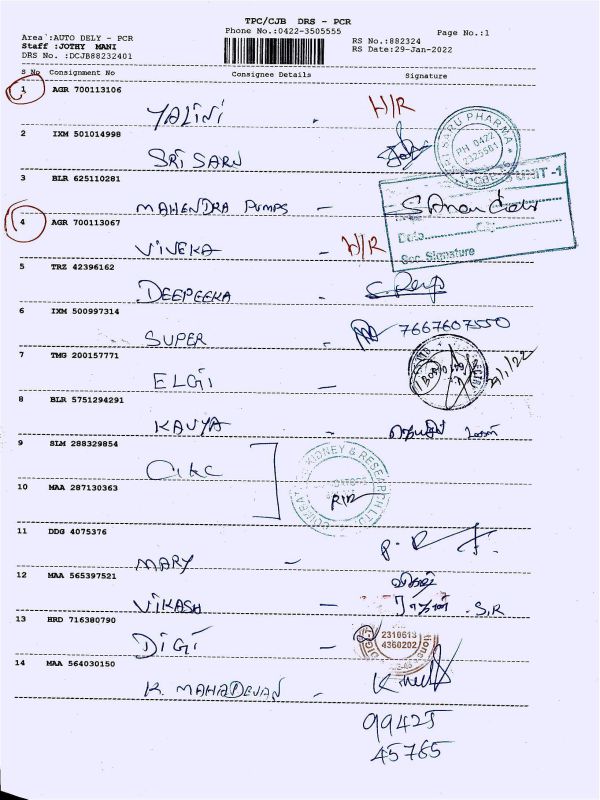 TPC/CJB DRS - PCR
Area :AUTO DELY - PCR
Phone No.:0422-3505555
Page No.:1
Staff :JOTHY MANI
RS No.:882324
DRS No. :DCJB88232401
RS Date:29-Jan-2022
S No Consignment No Consignee Details Signature
1 AGR 700113106
YALINI - H/R
2 IXM 501014998
SRI SARU
PHARMA
PH 0422
3 BLR 625110281
UNIT -1
MAHENDRA PUMPS -
Date
Sec. Signature
4 AGR 700113067
VIVEKA - H/R
5 TRZ 42396162
DEEPEEKA -
6 IXM 500997314
SUPER - 7667607550
7 TMG 200157771
ELGI -
8 BLR 5751294291
KAVYA -
9 SLM 288329854
KIDNEY & RESEARCH
10 MAA 287130363
11 DDG 4075376
MARY -
12 MAA 565397521
VIKASH - S.R
13 HRD 716380790
DIGI -
2310613
4360202
14 MAA 564030150
K. MAHADEVAN -
99425
45765